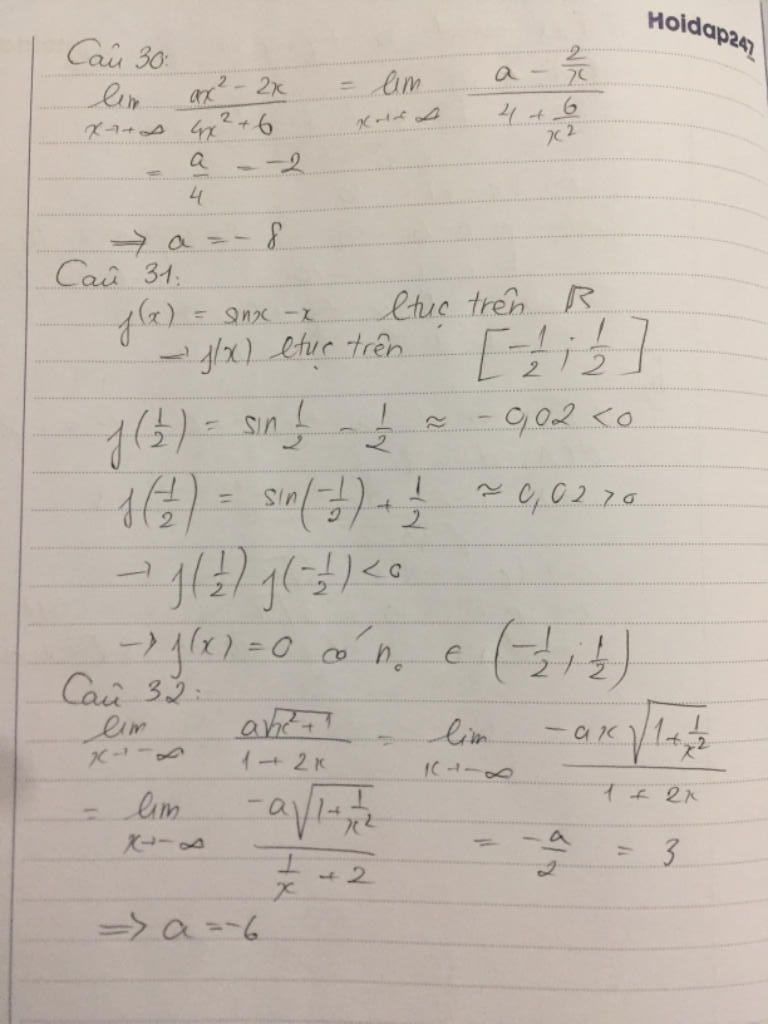 Hoidap247
Câu 30:
lim x→+∞ (ax² - 2x)/(4x² + 6) = lim x→+∞ (a - 2/x)/(4 + 6/x²)
= a/4 = -2
⇒ a = -8
Câu 31:
f(x) = sinx - x ltục trên R
→ f(x) ltục trên [-1/2 ; 1/2]
f(1/2) = sin 1/2 - 1/2 ≈ -0,02 < 0
f(-1/2) = sin(-1/2) + 1/2 ≈ 0,02 > 0
→ f(1/2) f(-1/2) < 0
→ f(x) = 0 có n₀ ∈ (-1/2 ; 1/2)
Câu 32:
lim x→-∞ a√(x² + 1)/(1 + 2x) = lim x→-∞ -ax√(1 + 1/x²)/(1 + 2x)
= lim x→-∞ -a√(1 + 1/x²)/(1/x + 2) = -a/2 = 3
⇒ a = -6